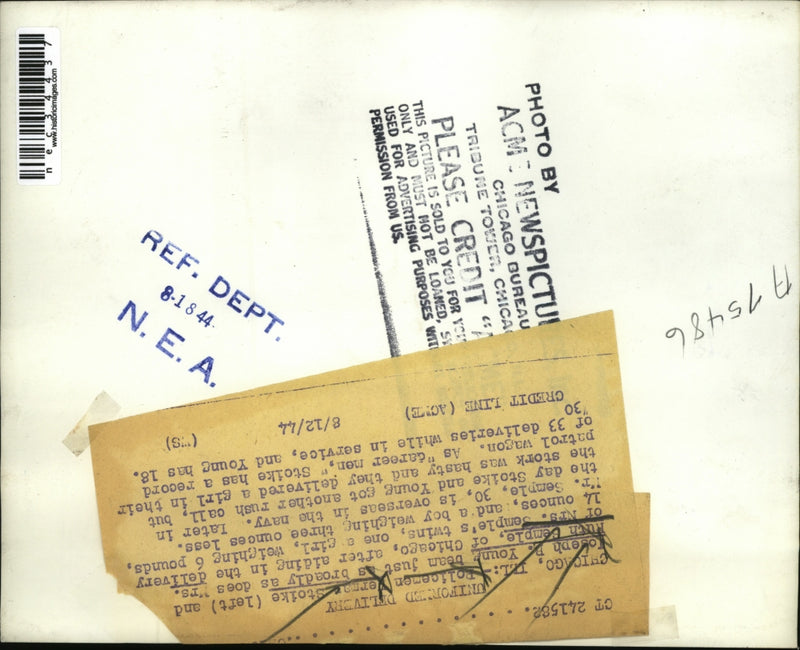 nec34437
www.historicimages.com
PHOTO BY
ACME NEWSPICTU
CHICAGO BUREAU
TRIBUNE TOWER, CHICA
PLEASE CREDIT "A
THIS PICTURE IS SOLD TO YOU FOR
ONLY AND MUST NOT BE LOANED,
USED FOR ADVERTISING PURPOSES WIT
PERMISSION FROM US.
REF. DEPT.
8-18 44
N. E. A.
A 75486
CT 241582
UNIFORMED DELIVERY
CHICAGO, ILL: Policemen Stoike (left) and
Joseph P. Young bean just as broadly as does Mrs.
Ruth Semple, of Chicago, after aiding in the delivery
of Mrs. Semple's twins, one a girl, weighing 6 pounds,
14 ounces, and a boy weighing ounces three ounces less.
Mr. Semple, 30, is overseas in the navy. Later in
the day Stoike and Young got another rush call, but
the stork was hasty and they delivered a girl in their
patrol wagon. As "career men," Stoike has a record
of 33 deliveries while in service, and Young has 18.
'30
CREDIT LINE (ACME) 8/12/44 (WS)